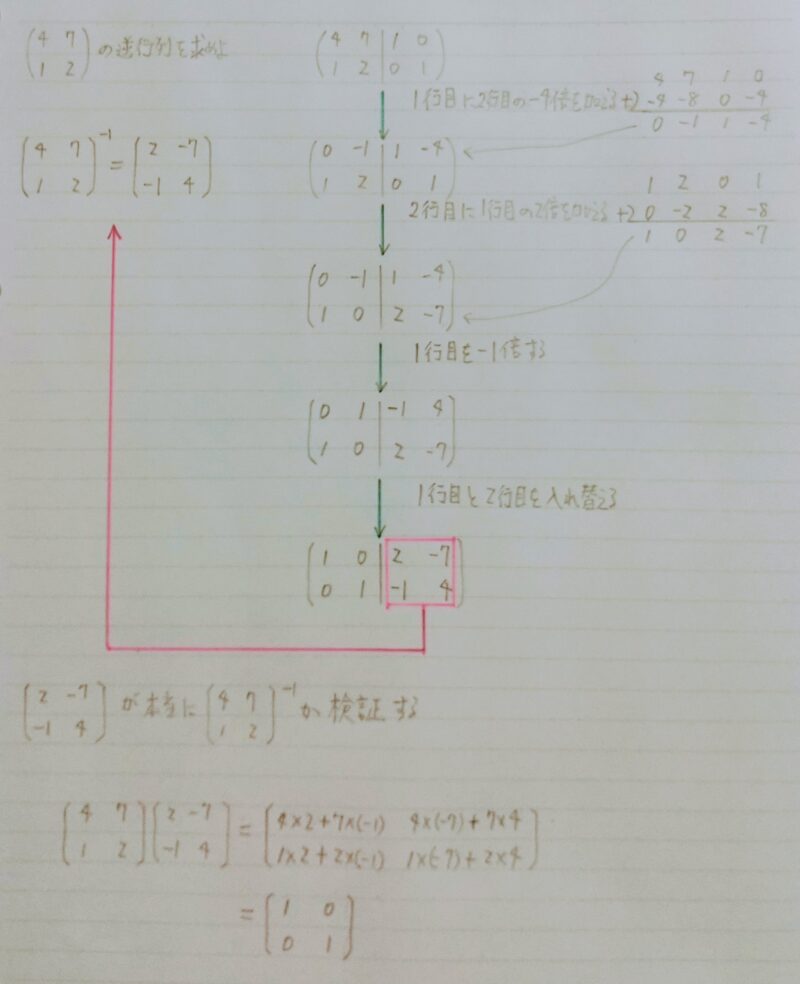 (4 7
1 2) の逆行列を求めよ
(4 7 | 1 0
1 2 | 0 1)
1行目に2行目の-4倍を加える
4 7 1 0
+) -4 -8 0 -4
0 -1 1 -4
(4 7
1 2)^-1 = (2 -7
-1 4)
(0 -1 | 1 -4
1 2 | 0 1)
2行目に1行目の2倍を加える
1 2 0 1
+) 0 -2 2 -8
1 0 2 -7
(0 -1 | 1 -4
1 0 | 2 -7)
1行目を-1倍する
(0 1 | -1 4
1 0 | 2 -7)
1行目と2行目を入れ替える
(1 0 | 2 -7
0 1 | -1 4)
(2 -7
-1 4) が本当に (4 7
1 2)^-1 か検証する
(4 7
1 2)(2 -7
-1 4) = (4×2+7×(-1) 4×(-7)+7×4
1×2+2×(-1) 1×(-7)+2×4)
= (1 0
0 1)